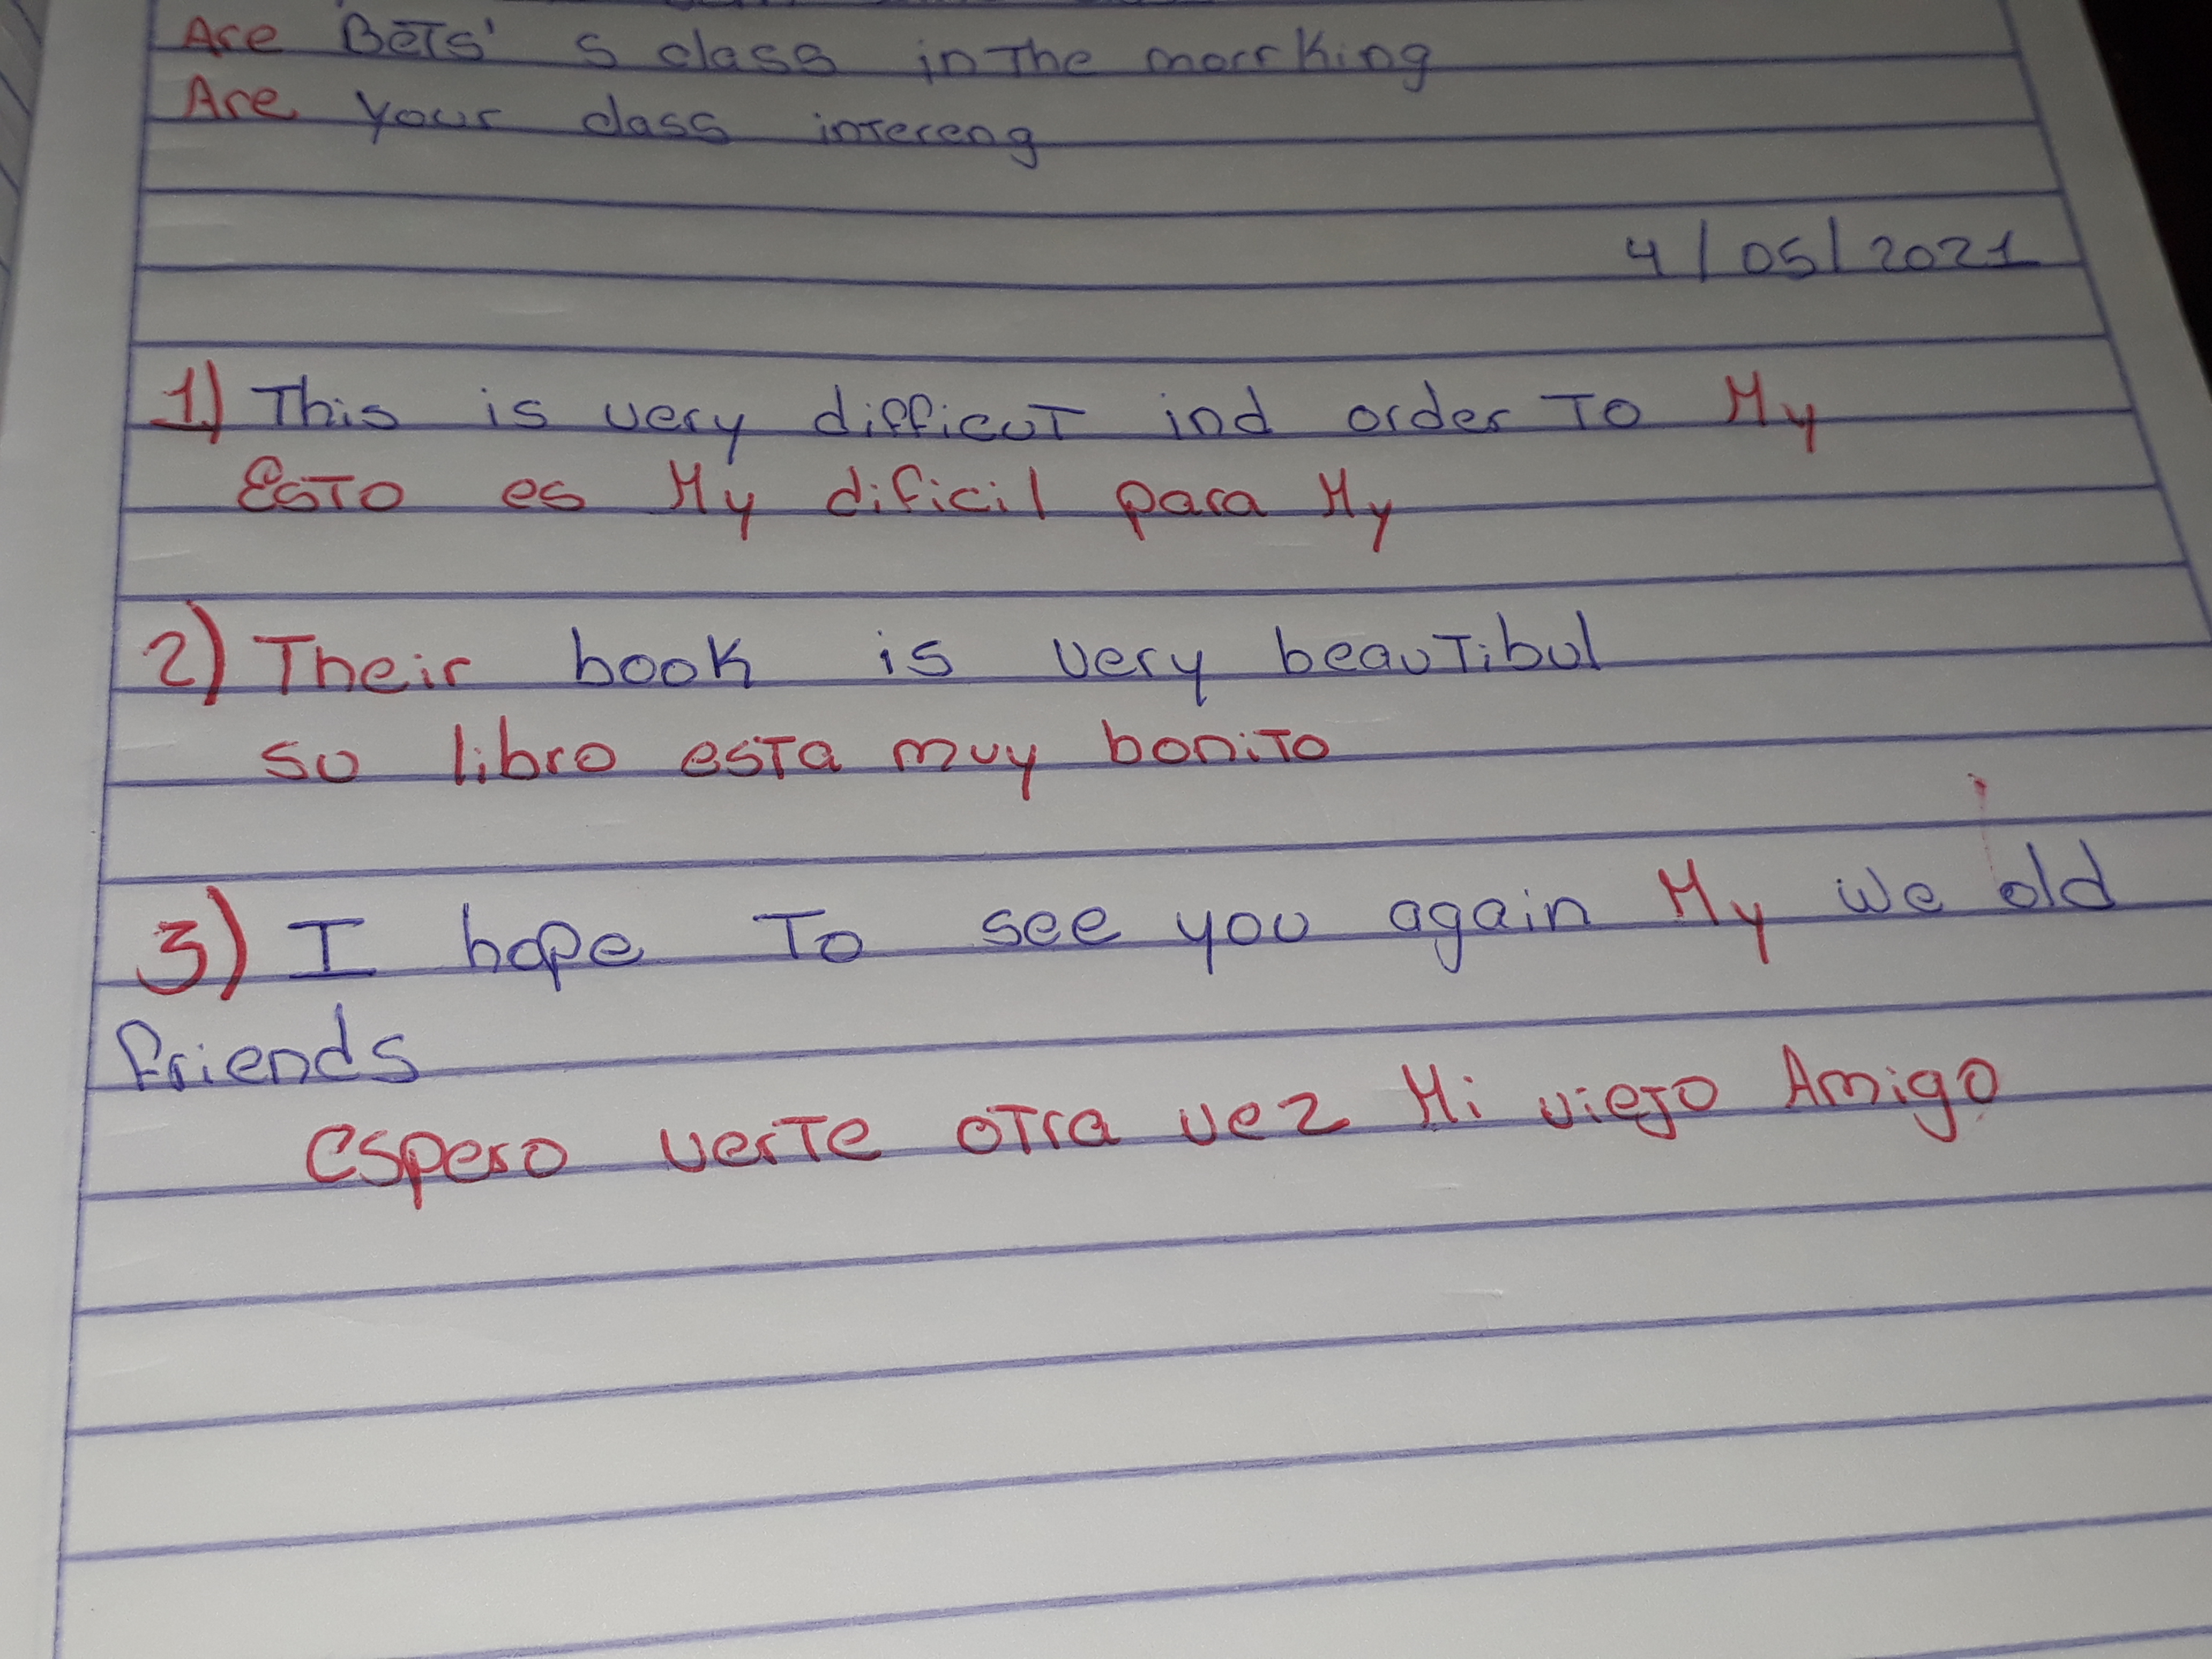 Are BeTs' s class in The morrKing
Are your class intereng
4/05/2021
1) This is very difficuT ind order To My
EsTo es My dificil para My
2) Their book is very beauTibul
su libro esTa muy boniTo
3) I hope To see you again My we old
friends
espero verTe oTra vez Mi viejo Amigo